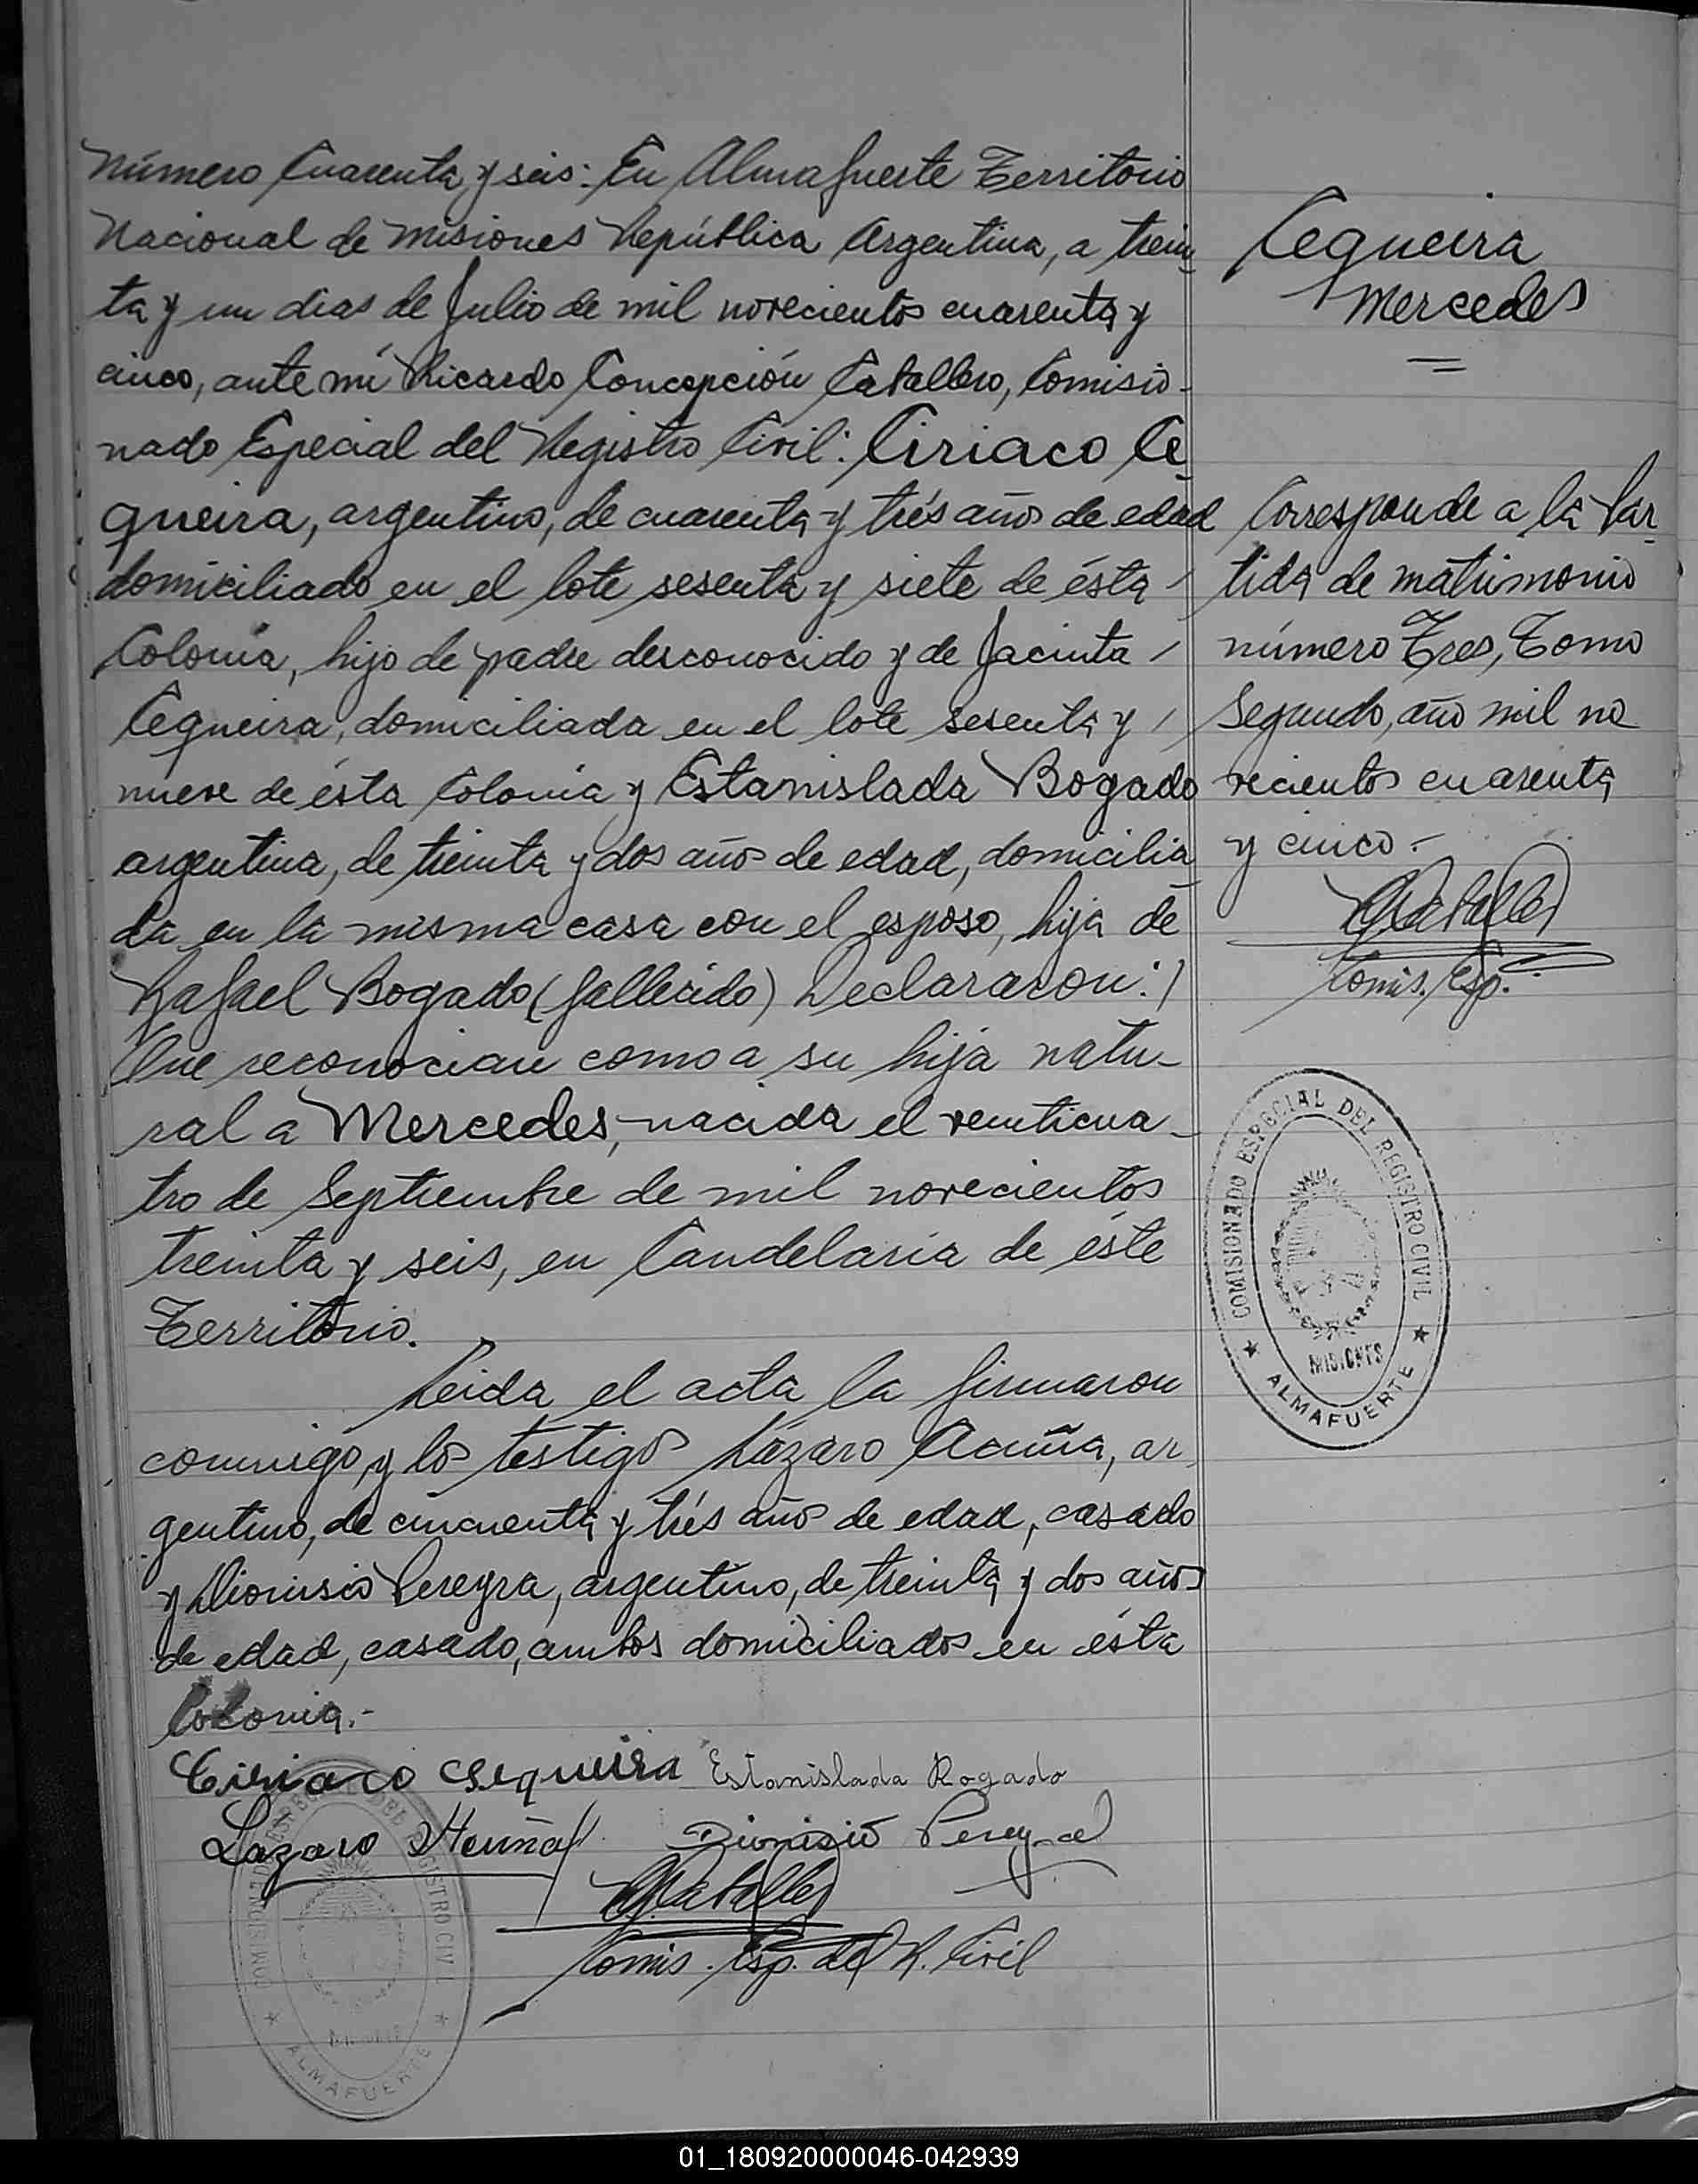 Número Cuarenta y seis: En Almafuerte Territorio
Nacional de Misiones República Argentina, a trein
ta y un dias de Julio de mil novecientos cuarenta y
cinco, ante mí Ricardo Concepción Caballero, Comisio-
nado Especial del Registro Civil: Ciriaco Ce
queira, argentino, de cuarenta y trés años de edad
domiciliado en el lote sesenta y siete de ésta /
Colonia, hijo de padre desconocido y de Jacinta /
Cequeira, domiciliada en el lote sesenta y /
nueve de ésta Colonia y Estanislada Bogado
argentina, de treinta y dos años de edad, domicilia
da en la misma casa con el esposo, hija de
Rafael Bogado (fallecido) Declararon: /
Que reconocian como a su hija natu-
ral a Mercedes, nacida el veinticua-
tro de Septiembre de mil novecientos
treinta y seis, en Candelaria de éste
Territorio.
Leida el acta la firmaron
conmigo, y los testigos Lázaro Acuña, ar
gentino, de cincuenta y trés años de edad, casado
y Dionisio Pereyra, argentino, de treinta y dos años
de edad, casado, ambos domiciliados en ésta
Colonia.-
Ciriaco Cequeira Estanislada Bogado
Lazaro Acuña Dionisio Pereyra
Comis. Esp. del R. Civil
Cequeira
Mercedes
Corresponde a la Par
tida de matrimonio
número Tres, Tomo
Segundo, año mil no
vecientos cuarenta
y cinco.-
Comis. Esp.
COMISIONADO ESPECIAL DEL REGISTRO CIVIL
MISIONES
★ ALMAFUERTE ★
COMISIONADO ESPECIAL DEL REGISTRO CIVIL
MISIONES
★ ALMAFUERTE ★
01_180920000046-042939